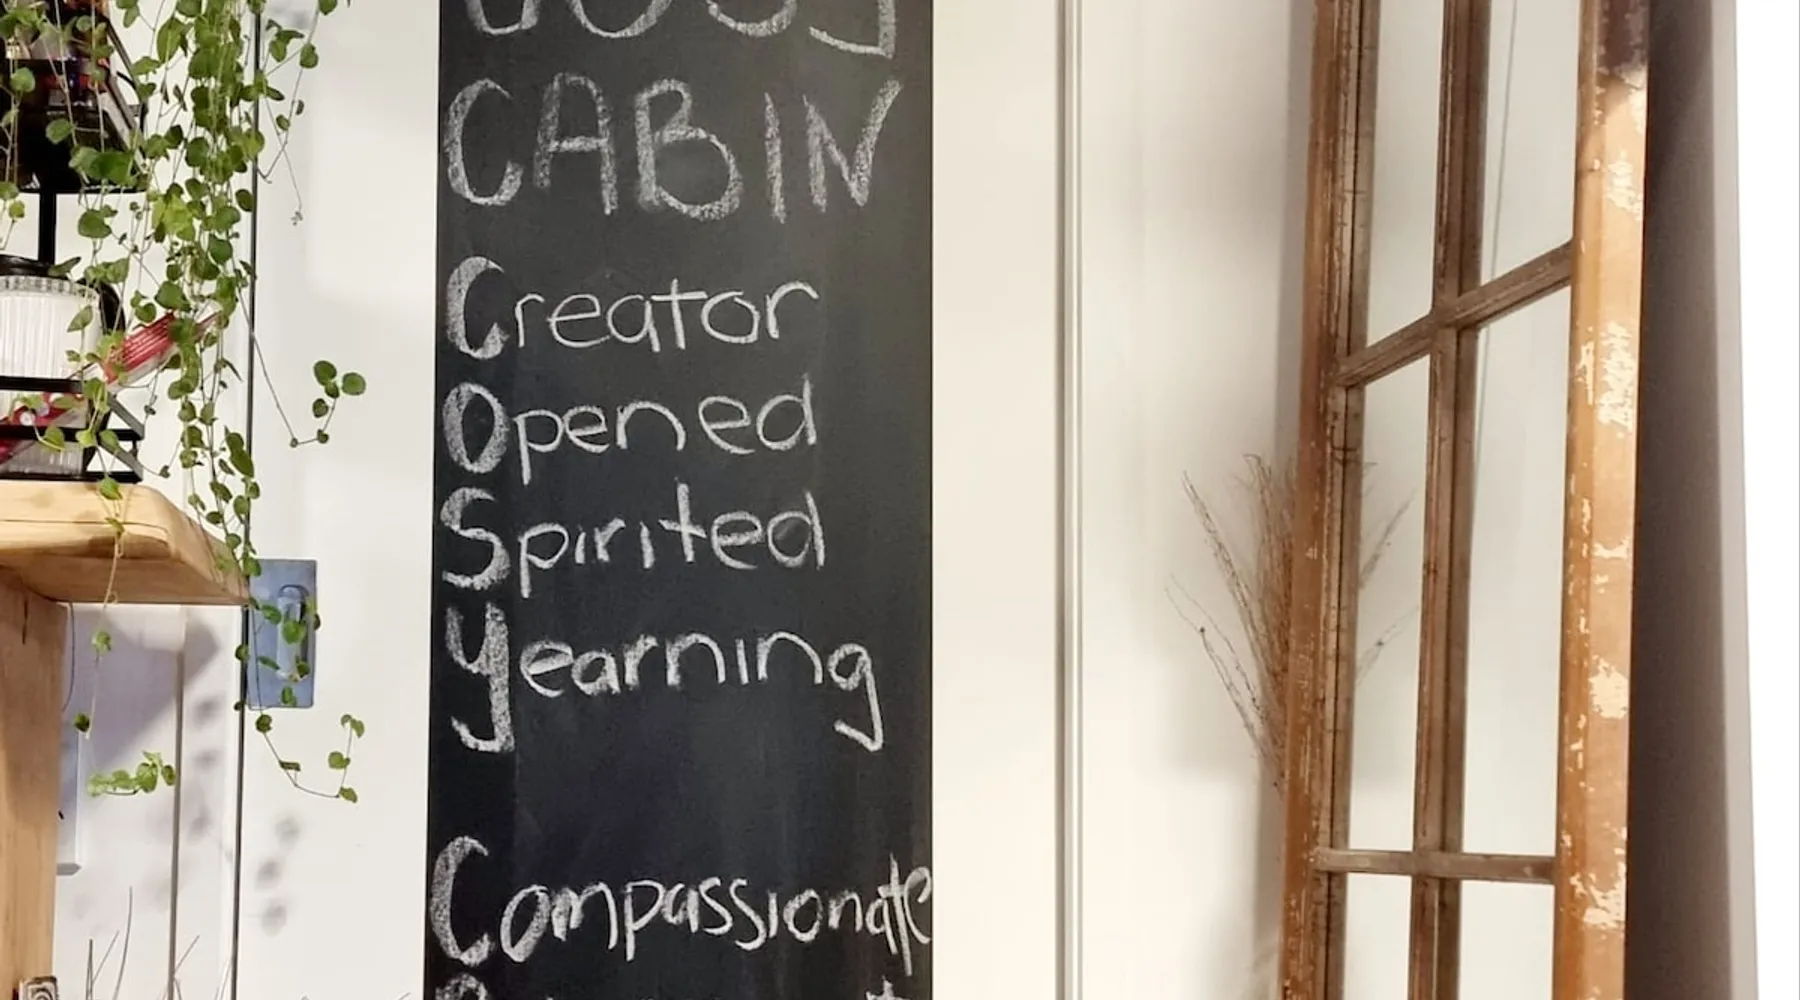 COSY
CABIN
Creator
Opened
Spirited
Yearning
Compassionate